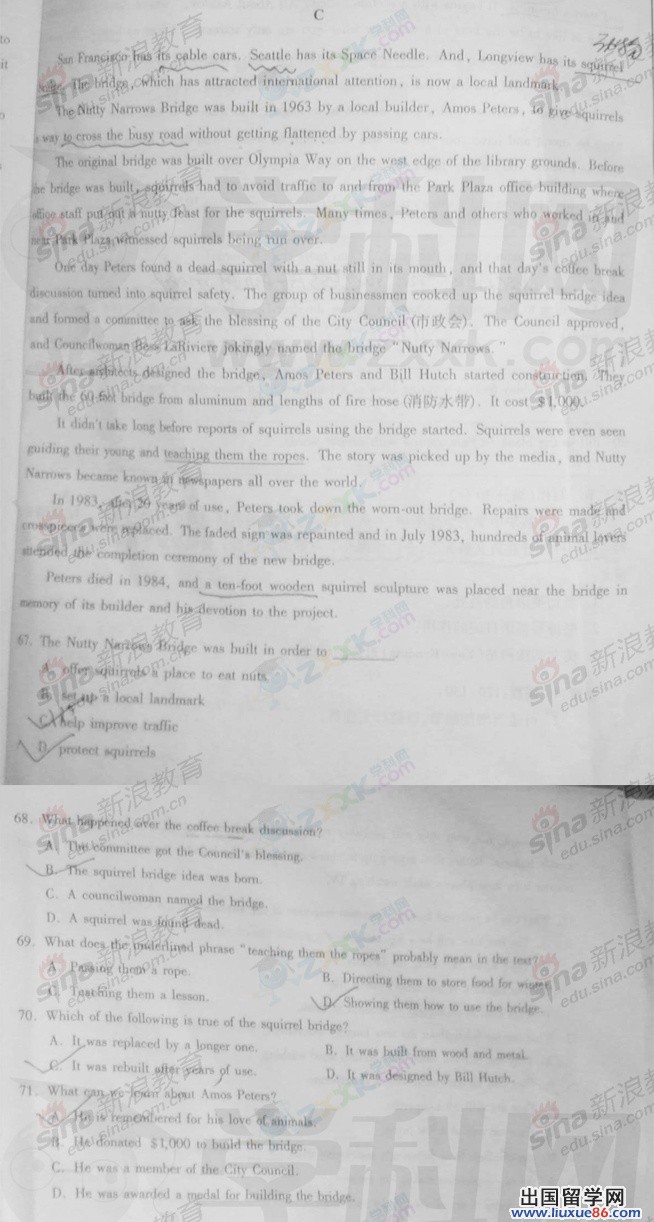 C
to
it
San Francisco has its cable cars. Seattle has its Space Needle. And, Longview has its squirrel
bridge. The bridge, which has attracted international attention, is now a local landmark.
The Nutty Narrows Bridge was built in 1963 by a local builder, Amos Peters, to give squirrels
a way to cross the busy road without getting flattened by passing cars.
The original bridge was built over Olympia Way on the west edge of the library grounds. Before
the bridge was built, squirrels had to avoid traffic to and from the Park Plaza office building where
office staff put out a nutty feast for the squirrels. Many times, Peters and others who worked in and
near Park Plaza witnessed squirrels being run over.
One day Peters found a dead squirrel with a nut still in its mouth, and that day's coffee break
discussion turned into squirrel safety. The group of businessmen cooked up the squirrel bridge idea
and formed a committee to ask the blessing of the City Council (市政会). The Council approved,
and Councilwoman Bess LaRiviere jokingly named the bridge "Nutty Narrows."
After architects designed the bridge, Amos Peters and Bill Hutch started construction. They
built the 60-foot bridge from aluminum and lengths of fire hose (消防水带). It cost $1,000.
It didn't take long before reports of squirrels using the bridge started. Squirrels were even seen
guiding their young and teaching them the ropes. The story was picked up by the media, and Nutty
Narrows became known in newspapers all over the world.
In 1983, after 20 years of use, Peters took down the worn-out bridge. Repairs were made and
crosspieces were replaced. The faded sign was repainted and in July 1983, hundreds of animal lovers
attended the completion ceremony of the new bridge.
Peters died in 1984, and a ten-foot wooden squirrel sculpture was placed near the bridge in
memory of its builder and his devotion to the project.
67. The Nutty Narrows Bridge was built in order to ______
A. offer squirrels a place to eat nuts
B. set up a local landmark
C. help improve traffic
D. protect squirrels
68. What happened over the coffee break discussion?
A. The committee got the Council's blessing.
B. The squirrel bridge idea was born.
C. A councilwoman named the bridge.
D. A squirrel was found dead.
69. What does the underlined phrase "teaching them the ropes" probably mean in the text?
A. Passing them a rope.
B. Directing them to store food for winter.
C. Teaching them a lesson.
D. Showing them how to use the bridge.
70. Which of the following is true of the squirrel bridge?
A. It was replaced by a longer one.
B. It was built from wood and metal.
C. It was rebuilt after years of use.
D. It was designed by Bill Hutch.
71. What can we learn about Amos Peters?
A. He is remembered for his love of animals.
B. He donated $1,000 to build the bridge.
C. He was a member of the City Council.
D. He was awarded a medal for building the bridge.
sina新浪教育
edu.sina.com.cn
学科网
ZXXK.com
出国留学网
www.liuxue86.com